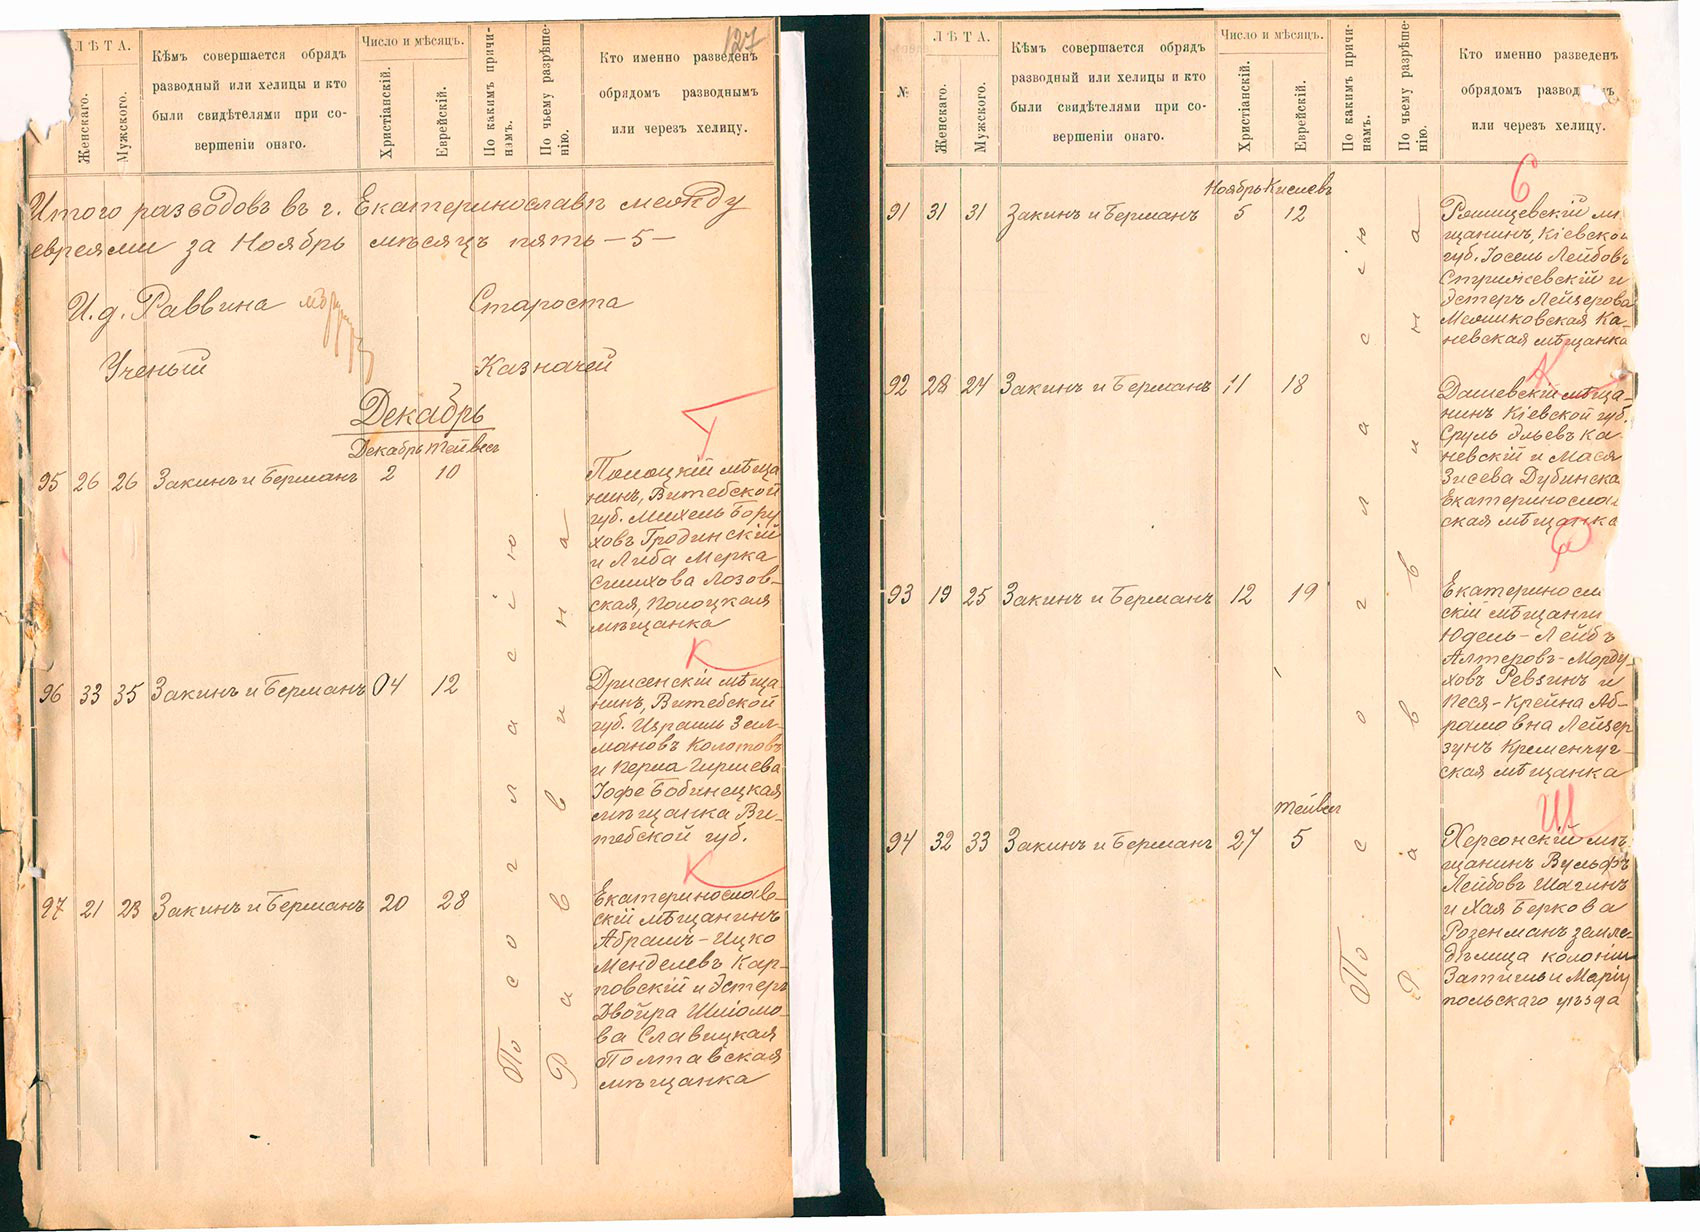 127
ЛѢТА.
Женскаго.
Мужского.
Кѣмъ совершается обрядъ
разводный или хелицы и кто
были свидѣтелями при со-
вершеніи онаго.
Число и мѣсяцъ.
Христіанскій.
Еврейскій.
По какимъ причи-
намъ.
По чьему разрѣше-
нію.
Кто именно разведенъ
обрядомъ разводнымъ
или черезъ хелицу.
Итого разводовъ въ г. Екатеринославѣ между
евреями за Ноябрь мѣсяцъ пять — 5 —
И.д. Раввина
Староста
Ученый
Казначей
Декабрь
Декабрь Тейвесъ
95 26 26 Закинъ и Берманъ 2 10
Полоцкій мѣща
нинъ, Витебской
губ. Михель Бору
ховъ Гродинскій
и Либа Мерка
Симхова Лозов-
ская, Полоцкая
мѣщанка
96 33 35 Закинъ и Берманъ 04 12
Дрисенскій мѣща-
нинъ, Витебской
губ. Израиль Зел-
мановъ Колотовъ
и Перла Гиршева
Іофе Бобинецкая
мѣщанка Ви-
тебской губ.
97 21 23 Закинъ и Берманъ 20 28
Екатеринослав-
скій мѣщанинъ
Абрамъ-Ицко
Менделевъ Кар-
повскій и Эстеръ
Двойра Шліомо-
ва Славицкая
Полтавская
мѣщанка
По согласію
Раввина
Т
К
К
ЛѢТА.
№
Женскаго.
Мужского.
Кѣмъ совершается обрядъ
разводный или хелицы и кто
были свидѣтелями при со-
вершеніи онаго.
Число и мѣсяцъ.
Христіанскій.
Еврейскій.
По какимъ причи-
намъ.
По чьему разрѣше-
нію.
Кто именно разведенъ
обрядомъ развод
или черезъ хелицу.
Ноябрь Кислевъ
С
91 31 31 Закинъ и Берманъ 5 12
мѣ
щанинъ, Кіевской
губ. Іосель Лейбовъ
Стрижевскій и
Эстеръ Лейзерова
Мошковская Ка-
невская мѣщанка
К
92 28 24 Закинъ и Берманъ 11 18
Дашевскій мѣща-
нинъ Кіевской губ.
Сруль Эльевъ Ка-
невскій и Мася
Зисева Дубинска
Екатеринослав
ская мѣщанка
93 19 25 Закинъ и Берманъ 12 19
Екатеринослав
скій мѣщанин
Юдель-Лейбъ
Алтеровъ-Морду-
ховъ Ревзинъ и
Песя-Крейна Аб-
рамовна Лейзер
зунъ Кременчуг-
ская мѣщанка
Тейвесъ
Ш
94 32 33 Закинъ и Берманъ 27 5
Херсонскій мѣ-
щанинъ Вульфъ
Лейбовъ Шагинъ
и Хая Беркова
Розенманъ земле-
дѣлица колоніи
Затишьи Маріу
польскаго уѣзда
По согласію
Раввина